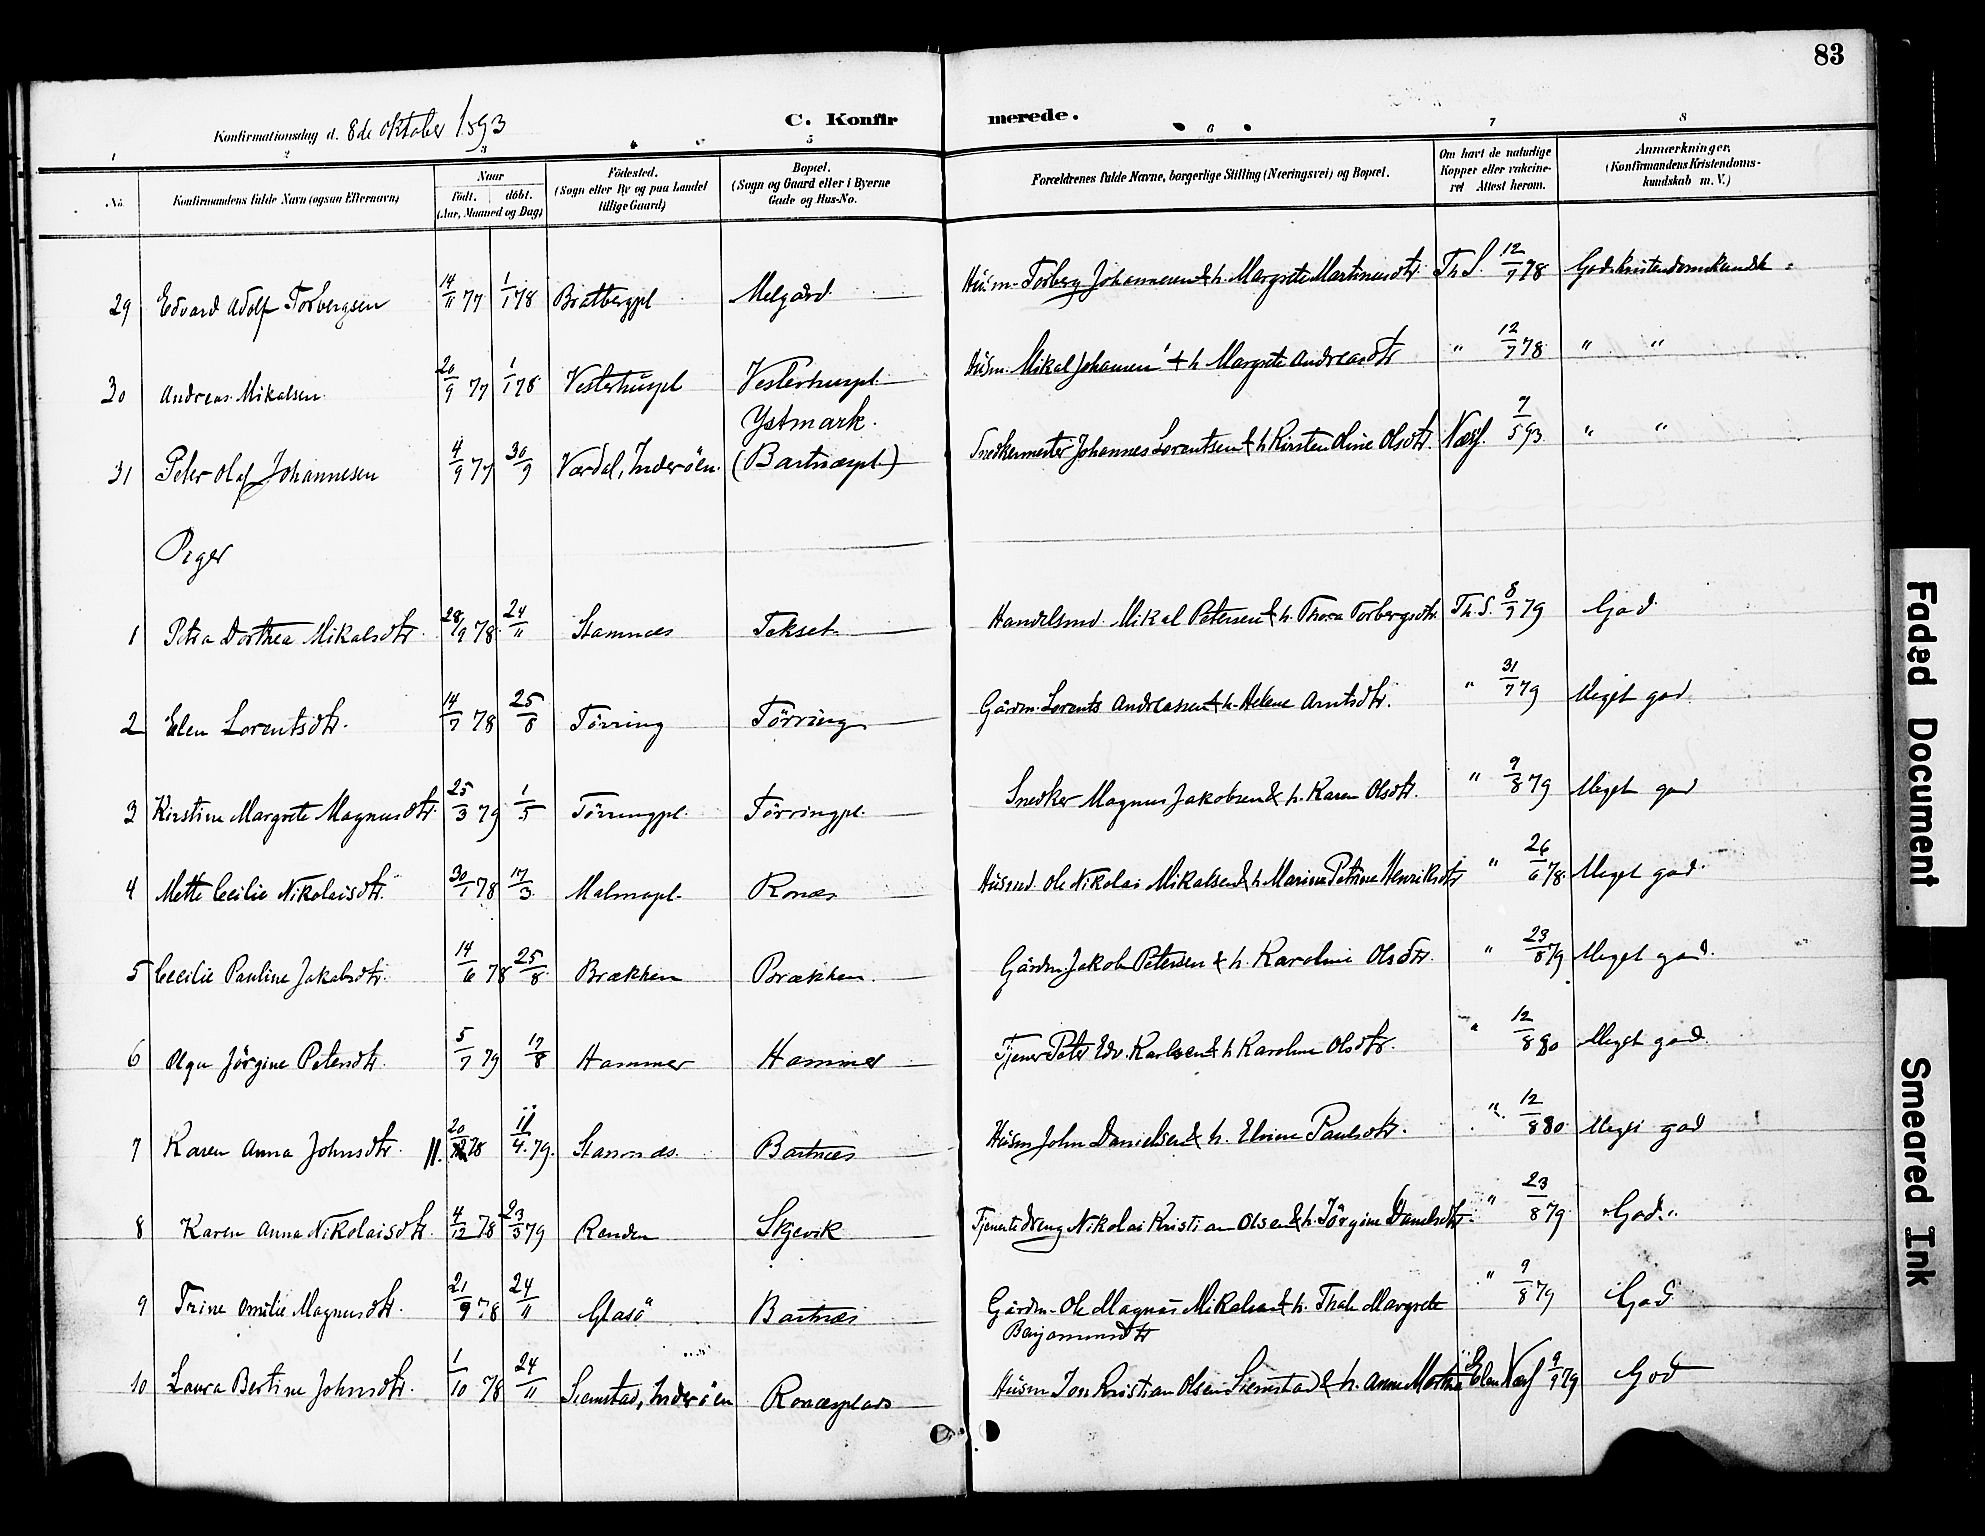 83
Konfirmationsdag d. 8de oktober 1893
C. Konfirmerede.
1 2 3 5 6 7 8
No.
Konfirmandens fulde Navn (ogsaa Efternavn)
Naar
födt. döbt.
(Aar, Maaned og Dag)
Födested.
(Sogn eller By og paa Landet
tillige Gaard)
Bopæl.
(Sogn og Gaard eller i Byerne
Gade og Hus-No.
Forældrenes fulde Navne, borgerlige Stilling (Næringsvei) og Bopæl.
Om havt de naturlige
Kopper eller vakcine-
ret Attest herom.
Anmærkninger.
(Konfirmandens Kristendoms-
kundskab m. V.)
29 Edvard Adolf Torbergsen 14/11 77 1/1 78 Bratbergpl Melgård Husm. Torberg Johannesen & h. Margrete Martinusdtr. Th S. 12/7 78 God kristendomskundsk.
30 Andreas Mikalsen 20/9 77 1/1 78 Vesterhuspl Vesterhuspl. Husm. Mikal Johansen & h Margrete Andreasdtr " 12/7 78 " "
31 Peter Olaf Johannesen 4/9 77 30/9 Værdal, Inderöen. Ystmark. (Bartnæspl.) Snedkermester Johannes Lorentsen & h. Kirsten Oline Olsdtr. 7/5 93 " "
Piger
1 Petra Dorthea Mikalsdtr. 28/9 78 24/11 Stamnæs Tekset Handelsmd. Mikal Petersen & h. Thora Torbergsdtr. Th. S. 8/7 79 God
2 Elen Lorentsdtr. 14/7 78 25/8 Törring Törring Gårdm. Lorents Andreassen & h. Helene Arntsdtr. " 31/7 79 Meget god
3 Kirstine Margrete Magnusdtr. 25/3 79 1/5 Törringpl. Törringpl. Snedker Magnus Jakobsen & h. Karen Olsdtr. " 9/8 79 Meget god
4 Mette Cecilie Nikolaisdtr. 30/1 78 17/3 Malmopl. Ronæs Husmd. Ole Nikolai Mikalsen & h Marine Petrine Henriksdtr " 26/6 78 Meget god.
5 Cecilie Pauline Jakobsdtr. 14/6 78 25/8 Brækken Brækken. Gårdm. Jakob Petersen & h. Karoline Olsdtr. " 23/8 79 Meget god.
6 Olga Jörgine Petersdtr. 5/7 79 17/8 Hammer Hammer Tjener Peter Edv. Karlsen & h Karoline Olsdtr. " 12/8 80 Meget god.
7 Karen Anna Johnsdtr. 20/ 78 11/4. 79. Stamnæs. Bartnæs Husm John Danielsen & h. Elvine Paulsdtr. " 12/8 80 Meget god
8 Karen Anna Nikolaisdtr. 4/12 78 23/3 79 Renden Skjevik Tjenestedreng Nikolai Kristian Olsen & h. Jörgine Danielsdtr. " 23/8 79. God.
9 Trine Omelie Magnusdtr. 21/9 78 24/11 Glasö Bartnæs Gårdm. Ole Magnus Mikalsen & h. Thale Margrete " 9/8 79 God
Benjaminsdtr
10 Laura Bertine Johnsdtr. 1/10 78 24/11 Siemstad, Inderöen Ronæsplads Husm Jon Kristian Olsen Siemstad & h. Anne Martha Elen 9/9 79 God
Faded Document
Smeared Ink